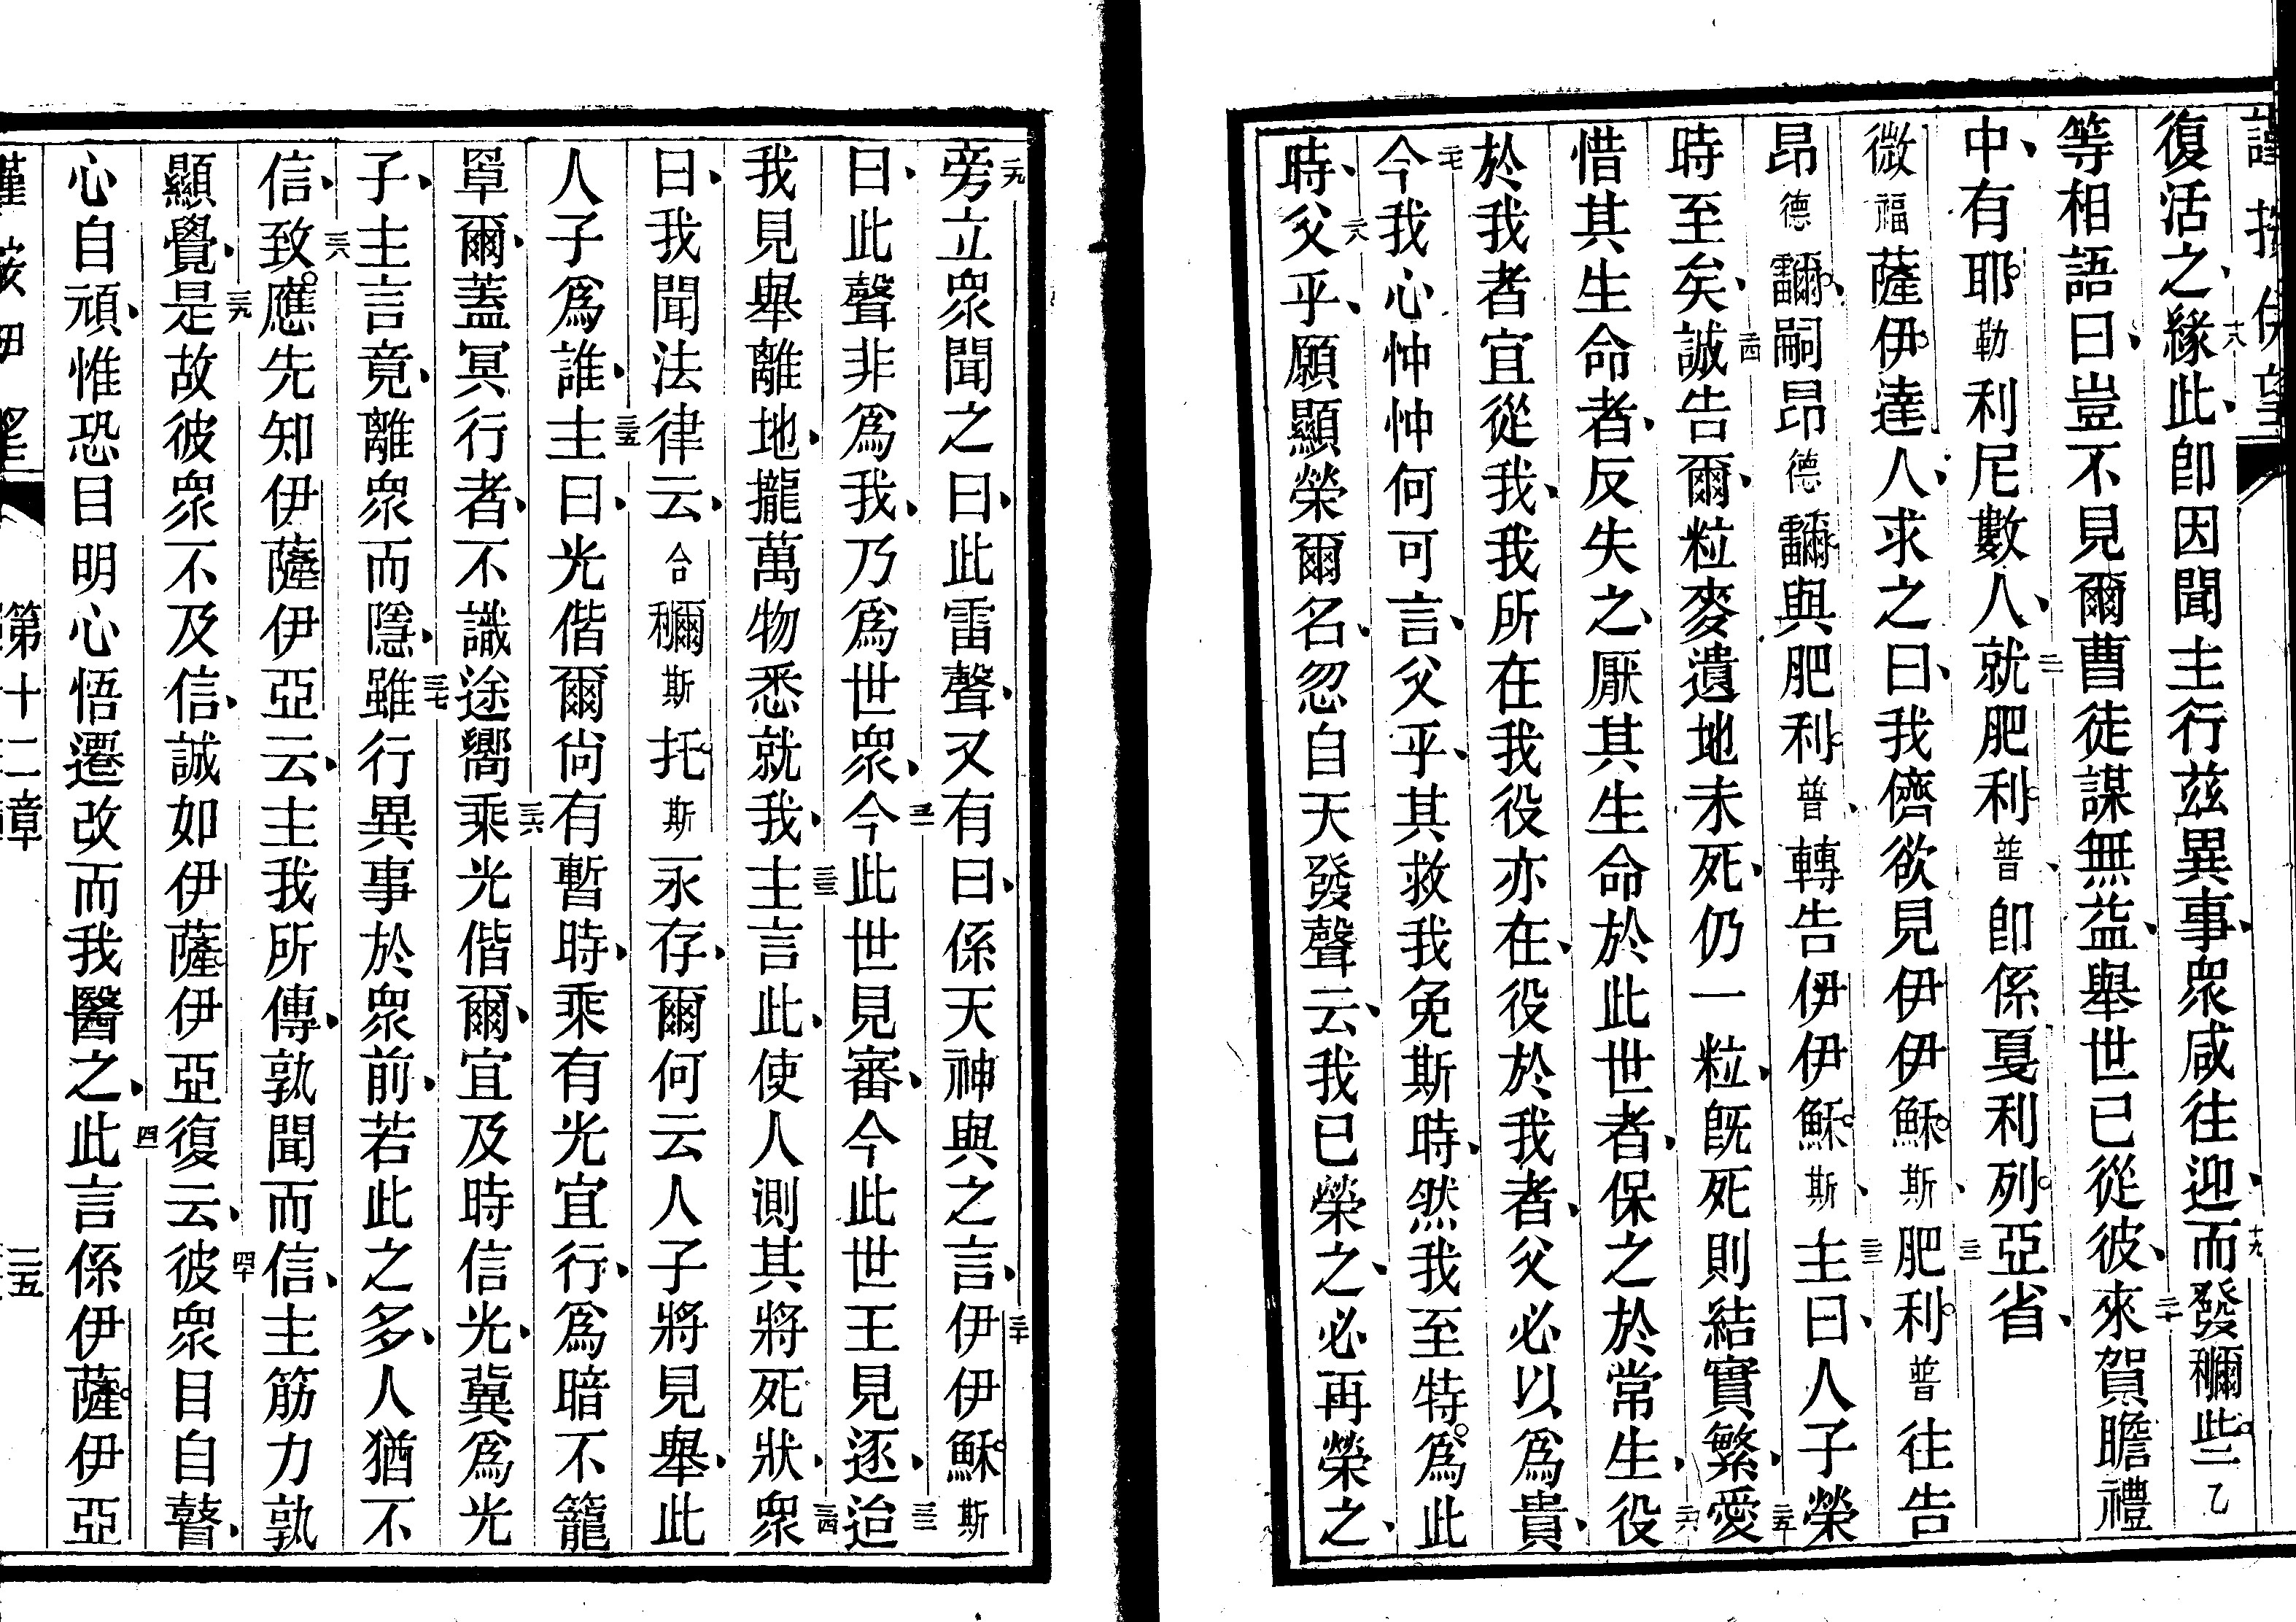 復活之緣十八此卽因聞主行茲異事衆咸往迎而十九發穪些乙
等相語曰豈不見爾曹徒謀無益舉世已從彼二十來賀瞻禮
中有耶勒利尼數人二一就肥利普卽係戛利列亞省
微福薩伊達人求之曰我儕欲見伊伊穌斯二二肥利普往告
昂德嗣昂德與肥利普轉告伊伊穌斯二三主曰人子榮
時至矣二四誠告爾粒麥遺地未死仍一粒旣死則結實繁二五愛
惜其生命者反失之厭其生命於此世者保之於常生二六役
於我者宜從我我所在我役亦在役於我者父必以爲貴
二七今我心忡忡何可言父乎其救我免斯時然我至特爲此
時二八父乎願顯榮爾名忽自天發聲云我已榮之必再榮之
二九旁立眾聞之曰此雷聲又有曰係天神與之言三十伊伊穌斯
曰此聲非爲我乃爲世眾三一今此世見審今此世王見逐三二迨
我見舉離地攏萬物悉就我三三主言此使人測其將死狀三四眾
曰我聞法律云合穪斯托斯永存爾何云人子將見舉此
人子爲誰三五主曰光偕爾尙有暫時乘有光宜行爲暗不籠
罩爾蓋冥行者不識途嚮三六乘光偕爾宜及時信光冀爲光
子主言竟離眾而隱三七雖行異事於眾前若此之多人猶不
信三八致應先知伊薩伊亞云主我所傳孰聞而信主筋力孰
顯覺三九是故彼眾不及信誠如伊薩伊亞復云四十彼眾目自瞽
心自頑惟恐目明心悟遷改而我醫之四一此言係伊薩伊亞
第十二章
三五